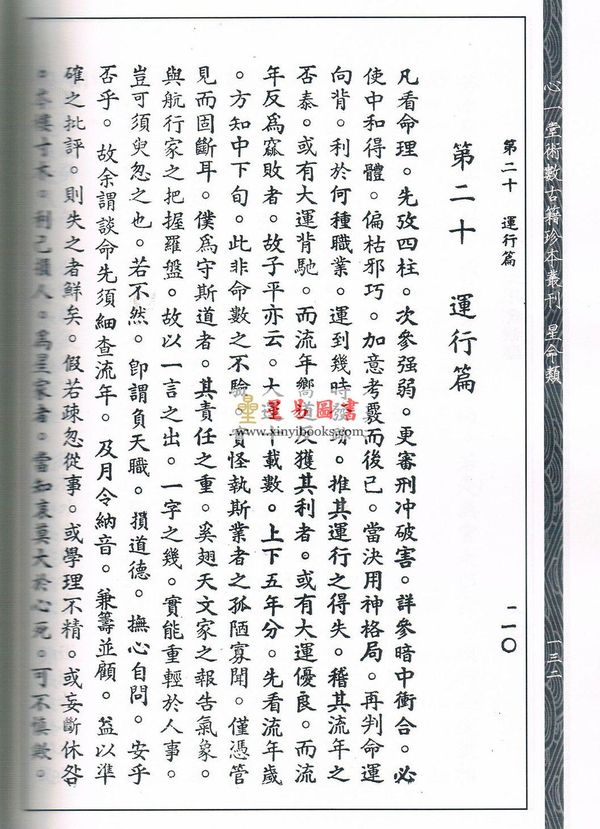 心一堂術數古籍珍本叢刊 星命類
一三二
第二十 運行篇
二一〇
第二十 運行篇
凡看命理。先攷四柱。次參强弱。更審刑冲破害。詳參暗中衝合。必
使中和得體。偏枯邪巧。加意考覈而後已。當決用神格局。再判命運
向背。利於何種職業。運到幾時發。推其運行之得失。稽其流年之
否泰。或有大運背馳。而流年嚮道。獲其利者。或有大運優良。而流
年反爲窳敗者。故子平亦云。大運十載數。上下五年分。先看流年歲
。方知中下旬。此非命數之不驗。實怪執斯業者之孤陋寡聞。僅憑管
見而固斷耳。僕爲守斯道者。其責任之重。奚翅天文家之報告氣象。
與航行家之把握羅盤。故以一言之出。一字之幾。實能重輕於人事。
豈可須臾忽之也。若不然。卽謂負天職。損道德。撫心自問。安乎
否乎。故余謂談命先須細查流年。及月令納音。兼籌並顧。益以準
確之批評。則失之者鮮矣。假若疎忽從事。或學理不精。或妄斷休咎
。岑樓寸木。利己損人。爲星家者。當知哀莫大於心死。可不慎歟。
星易圖書
www.xinyibooks.com